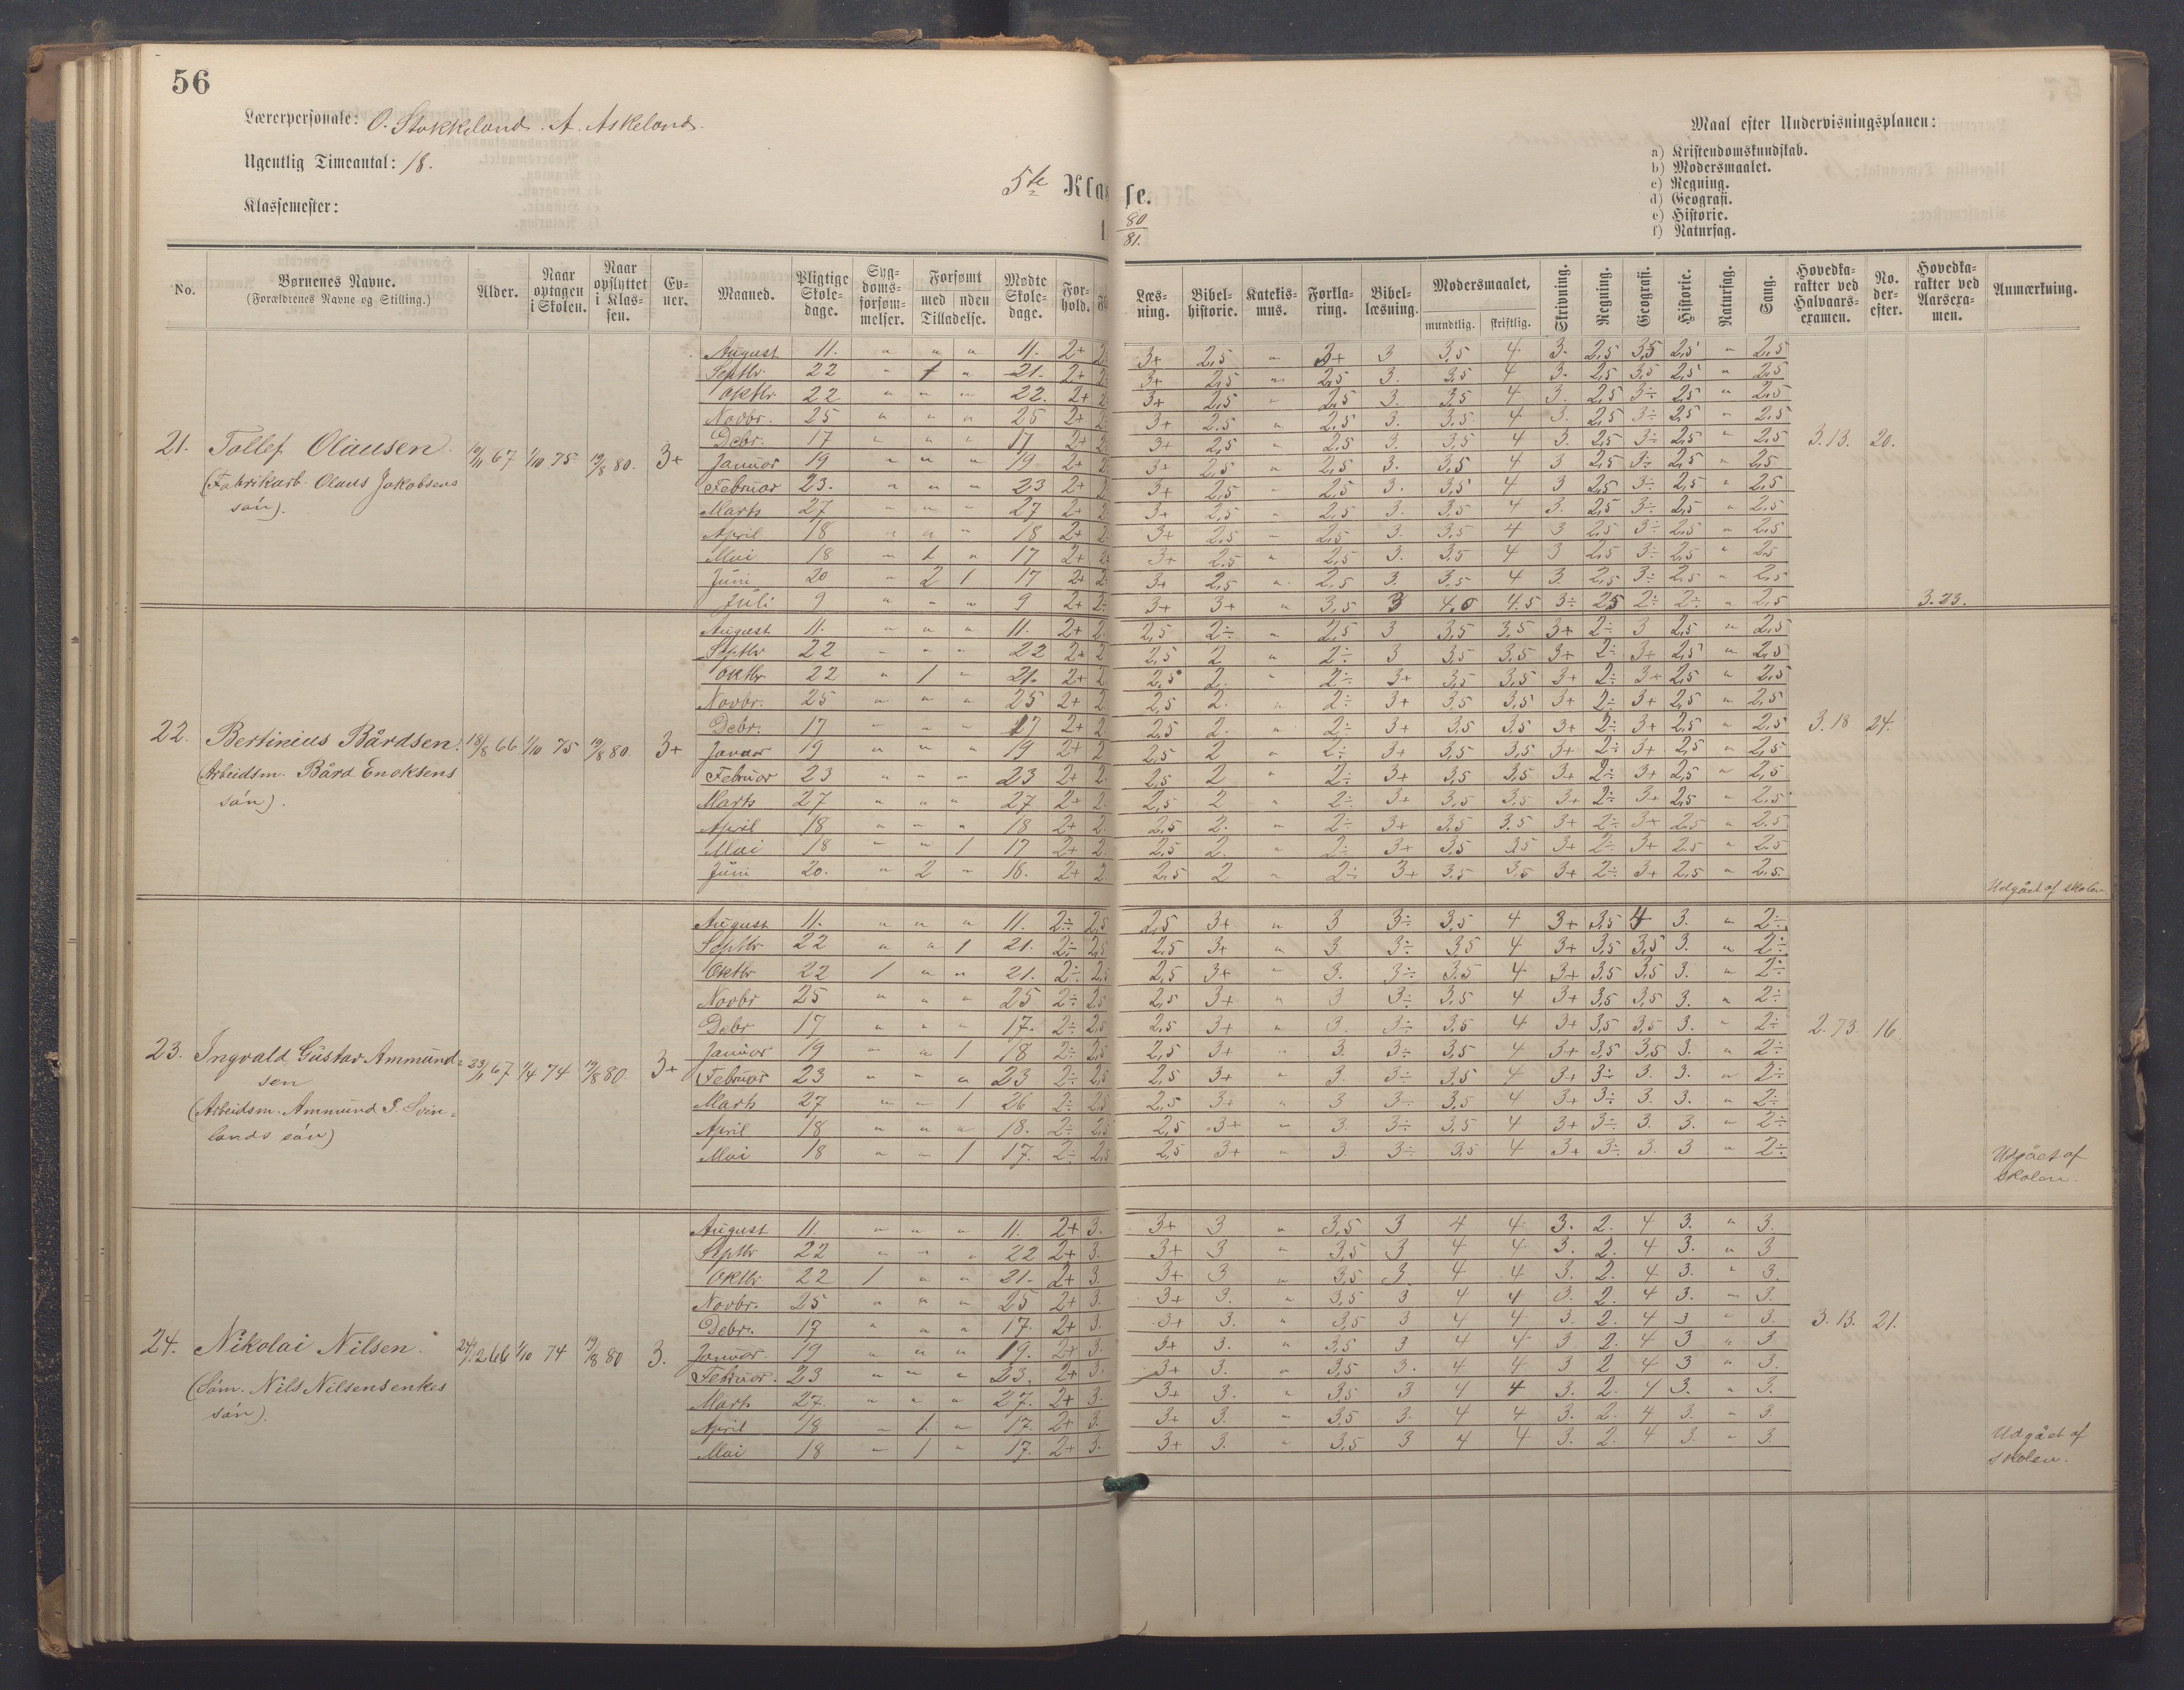 56
Lærerpersonale: O. Stokkeland. A. Askeland.
Ugentlig Timeantal: 18.
Klassemester:
5te Klasse.
80
81.
Maal efter Undervisningsplanen:
a) Kristendomskundskab.
b) Modersmaalet.
c) Regning.
d) Geografi.
e) Historie.
f) Naturfag.
No. Børnenes Navne. (Forældrenes Navne og Stilling.) Alder. Naar optagen i Skolen. Naar opflyttet i Klassen. Evner. Maaned. Pligtige Skoledage. Sygdomsforsømmelser. Forsømt med uden Tilladelse. Mødte Skoledage. Forhold. Læsning. Bibelhistorie. Katekismus. Forklaring. Bibellæsning. Modersmaalet, mundtlig. skriftlig. Skrivning. Regning. Geografi. Historie. Naturfag. Sang. Hovedkarakter ved Halvaarsexamen. No. derefter. Hovedkarakter ved Aarsexamen. Anmærkning.
August 11. " " " 11. 2+ 3+ 2,5 " 3+ 3 3,5 4 3. 2,5 3,5 2,5 " 2,5
Septbr. 22 " 1 " 21. 2+ 3+ 2,5 " 2,5 3. 3,5 4 3. 2,5 3,5 2,5 " 2,5
Oktbr. 22 " " " 22. 2+ 3+ 2,5 " 2,5 3. 3,5 4 3. 2,5 3÷ 2,5 " 2,5
Novbr. 25 " " " 25 2+ 3+ 2,5 " 2,5 3. 3,5 4 3. 2,5 3÷ 2,5 " 2,5
Debr. 17 " " " 17 2+ 3+ 2,5 " 2,5 3. 3,5 4 3. 2,5 3÷ 2,5 " 2,5
21. Tollef Olausen. 67 1/10 75 19/8 80. 3+ 3.13. 20.
Januar 19 " " " 19. 2+ 3+ 2,5 " 2,5 3. 3,5 4 3 2,5 3÷ 2,5 " 2,5
(Fabrikarb. Olaus Jakobsens
Februar 23. " " " 23 2+ 3+ 2,5 " 2,5 3. 3,5 4 3 2,5 3÷ 2,5 " 2,5
søn).
Marts 27 " " " 27 2+ 3+ 2,5 " 2,5 3. 3,5 4 3. 2,5 3÷ 2,5 " 2,5
April 18 " " " 18 2+ 3+ 2,5 " 2,5 3. 3,5 4 3 2,5 3÷ 2,5 " 2,5
Mai 18 " 1 " 17 2+ 3+ 2,5 " 2,5 3. 3,5 4 3 2,5 3÷ 2,5 " 2,5
Juni 20 " 2 1 17 2+ 3+ 2,5 " 2,5 3. 3,5 4 3. 2,5 3÷ 2,5 " 2,5
Juli 9 " " " 9 2+ 2÷ 3+ 3+ " 3,5 3 4,0 4,5 3÷ 2,5 2÷ 2÷ " 2,5 3.23.
August 11. " " " 11. 2+ 2. 2,5 2÷ " 2,5 3 3,5 3,5 3+ 2÷ 3 2,5 " 2,5
Septbr 22 " " " 22 2+ 2 2,5 2 " 2÷ 3 3,5 3,5 3+ 2÷ 3+ 2,5 " 2,5
Oktbr 22 " 1 " 21. 2+ 2 2,5 2. " 2÷ 3+ 3,5 3,5 3+ 2÷ 3+ 2,5 " 2,5
Novbr. 25 " " " 25 2+ 2 2,5 2. " 2÷ 3+ 3,5 3,5 3+ 2÷ 3+ 2,5 " 2,5
Debr. 17 " " " 17 2+ 2. 2,5 2. " 2÷ 3+ 3,5 3,5 3+ 2÷ 3+ 2,5 " 2,5
22. Bertinius Bårdsen. 18/8 66 1/10 75 19/8 80. 3+ 3.18 24.
Januar 19 " " " 19 2+ 2 2,5 2 " 2÷ 3+ 3,5 3,5 3+ 2÷ 3+ 2,5 " 2,5
(Arbeidsm. Bård Enoksens
Februar 23 " " " 23 2+ 2. 2,5 2 " 2÷ 3+ 3,5 3,5 3+ 2÷ 3+ 2,5 " 2,5
søn).
Marts 27 " " " 27 2+ 2. 2,5 2 " 2÷ 3+ 3,5 3,5 3+ 2÷ 3+ 2,5 " 2,5
April 18 " " " 18 2+ 2. 2,5 2. " 2÷ 3+ 3,5 3,5 3+ 2÷ 3+ 2,5 " 2,5
Mai 18 " " 1 17 2+ 2 2,5 2. " 2÷ 3+ 3,5 3,5 3+ 2÷ 3+ 2,5 " 2,5
Juni 20. " 2 " 18. 2+ 2. 2,5 2 " 2÷ 3+ 3,5 3,5 3+ 2÷ 3+ 2,5 " 2,5 Udgået af skolen
August 11. " " " 11. 2÷ 2,5 2,5 3+ " 3 3÷ 3,5 4 3+ 3,5 4 3. " 2÷
Septbr 22 " " 1 21. 2÷ 2,5 2,5 3+ " 3 3÷ 3,5 4 3+ 3,5 3,5 3. " 2÷
Oktbr 22 1 " " 21. 2÷ 2,5 2,5 3+ " 3. 3÷ 3,5 4 3+ 3,5 3,5 3. " 2÷
Novbr 25 " " " 25 2÷ 2,5 2,5 3+ " 3 3÷ 3,5 4 3+ 3,5 3,5 3. " 2÷
Debr 17 " " " 17. 2÷ 2,5 2,5 3+ " 3. 3÷ 3,5 4 3+ 3,5 3,5 3. " 2÷ 2.73. 16.
23. Ingvald Gustav Ammund= 67 1/4 74 19/8 80. 3+
Januar 19 " " 1 18 2÷ 2,5 2,5 3+ " 3. 3÷ 3,5 4 3+ 3,5 3,5 3. " 2÷
sen
Februar 23 " " " 23 2÷ 2,5 2,5 3+ " 3. 3÷ 3,5 4 3+ 3÷ 3. 3. " 2÷
(Arbeidsm. Ammund S. Svin=
Marts 27 " " 1 26 2÷ 2,5 2,5 3+ " 3 3÷ 3,5 4 3+ 3÷ 3. 3. " 2÷
lands søn)
April 18 " " " 18. 2÷ 2,5 2,5 3+ " 3. 3÷ 3,5 4 3+ 3÷ 3. 3. " 2÷
Mai 18 " " 1 17. 2÷ 2,5 2,5 3+ " 3. 3÷ 3,5 4 3+ 3÷ 3. 3 " 2÷ Udgået af
skolen.
August 11. " " " 11. 2+ 3. 3+ 3 " 3,5 3 4 4 3. 2. 4 3. " 3.
Septbr 22 " " " 22 2+ 3. 3+ 3 " 3,5 3 4 4 3. 2. 4 3. " 3
Oktbr 22 1 " " 21. 2+ 3. 3+ 3 " 3,5 3. 4 4 3. 2. 4 3. " 3.
Novbr. 25 " " " 25 2+ 3. 3+ 3. " 3,5 3 4 4 3. 2. 4 3. " 3.
Debr. 17 " " " 17. 2+ 3. 3+ 3. " 3,5 3 4 4 3. 2. 4 3 " 3. 3.13. 21.
24. Nikolai Nilsen. 66 1/10 74 19/8 80 3.
Januar. 19 " " " 19. 2+ 3. 3+ 3. " 3,5 3 4 4 3 2. 4 3 " 3
Februar. 23 " " " 23. 2+ 3. 3+ 3. " 3,5 3. 4 4 3 2 4 3 " 3.
(Søm. Nils Nilsens enkes
Marts 27. " " " 27. 2+ 3. 3+ 3. " 3,5 3 4 4 3. 2. 4 3. " 3.
søn).
April 18 " 1. " 17. 2+ 3. 3+ 3. " 3,5 3. 4 4 3. 2. 4 3. " 3.
Mai 18 " 1 " 17. 2+ 3. 3+ 3. " 3,5 3 4 4 3. 2. 4 3. " 3. Udgået af
skolen.